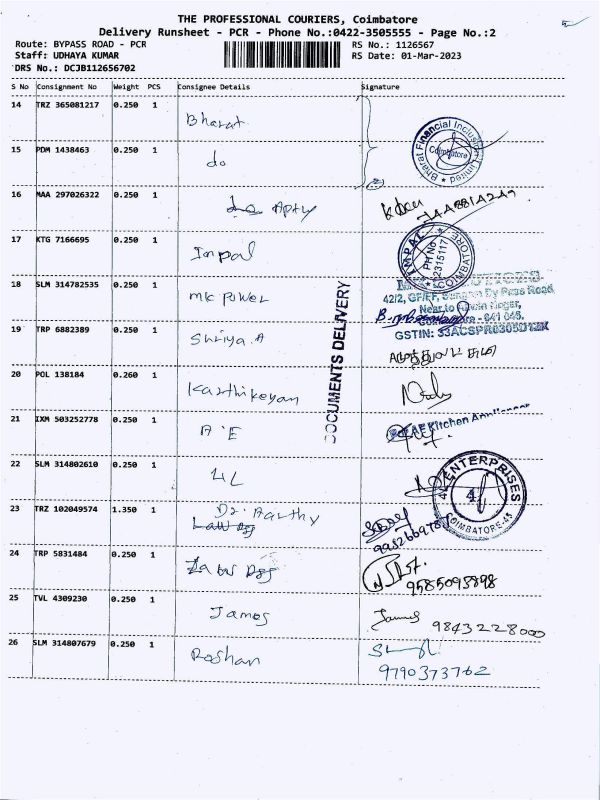 THE PROFESSIONAL COURIERS, Coimbatore
Delivery Runsheet - PCR - Phone No.:0422-3505555 - Page No.:2
Route: BYPASS ROAD - PCR
RS No.: 1126567
Staff: UDHAYA KUMAR
RS Date: 01-Mar-2023
DRS No.: DCJB112656702
S No Consignment No Weight PCS Consignee Details Signature
14 TRZ 365081217 0.250 1 Bharat
Bharat Financial Inclusion Limited
Coimbatore
15 PDM 1438463 0.250 1 do
16 MAA 297026322 0.250 1 Apty
17 KTG 7166695 0.250 1 Impal
IMPAL
PH No
2315117
COIMBATORE
18 SLM 314782535 0.250 1 mk power
42/2, GF/FF, By Pass Road
Near to Nagar,
- 641 045.
GSTIN: 33ACSPR0305D1ZK
DOCUMENTS DELIVERY
19 TRP 6882389 0.250 1 Suriya.A
20 POL 138184 0.260 1 Karthikeyan
21 IXM 503252778 0.250 1 A.E
Kitchen
22 SLM 314802610 0.250 1 4L
4L ENTERPRISES
4L
COIMBATORE-45
23 TRZ 102049574 1.350 1 Dr. Aarthy
24 TRP 5831484 0.250 1
9585093898
25 TVL 4309230 0.250 1 James
James 9843228000
26 SLM 314807679 0.250 1 Roshan
9790373762